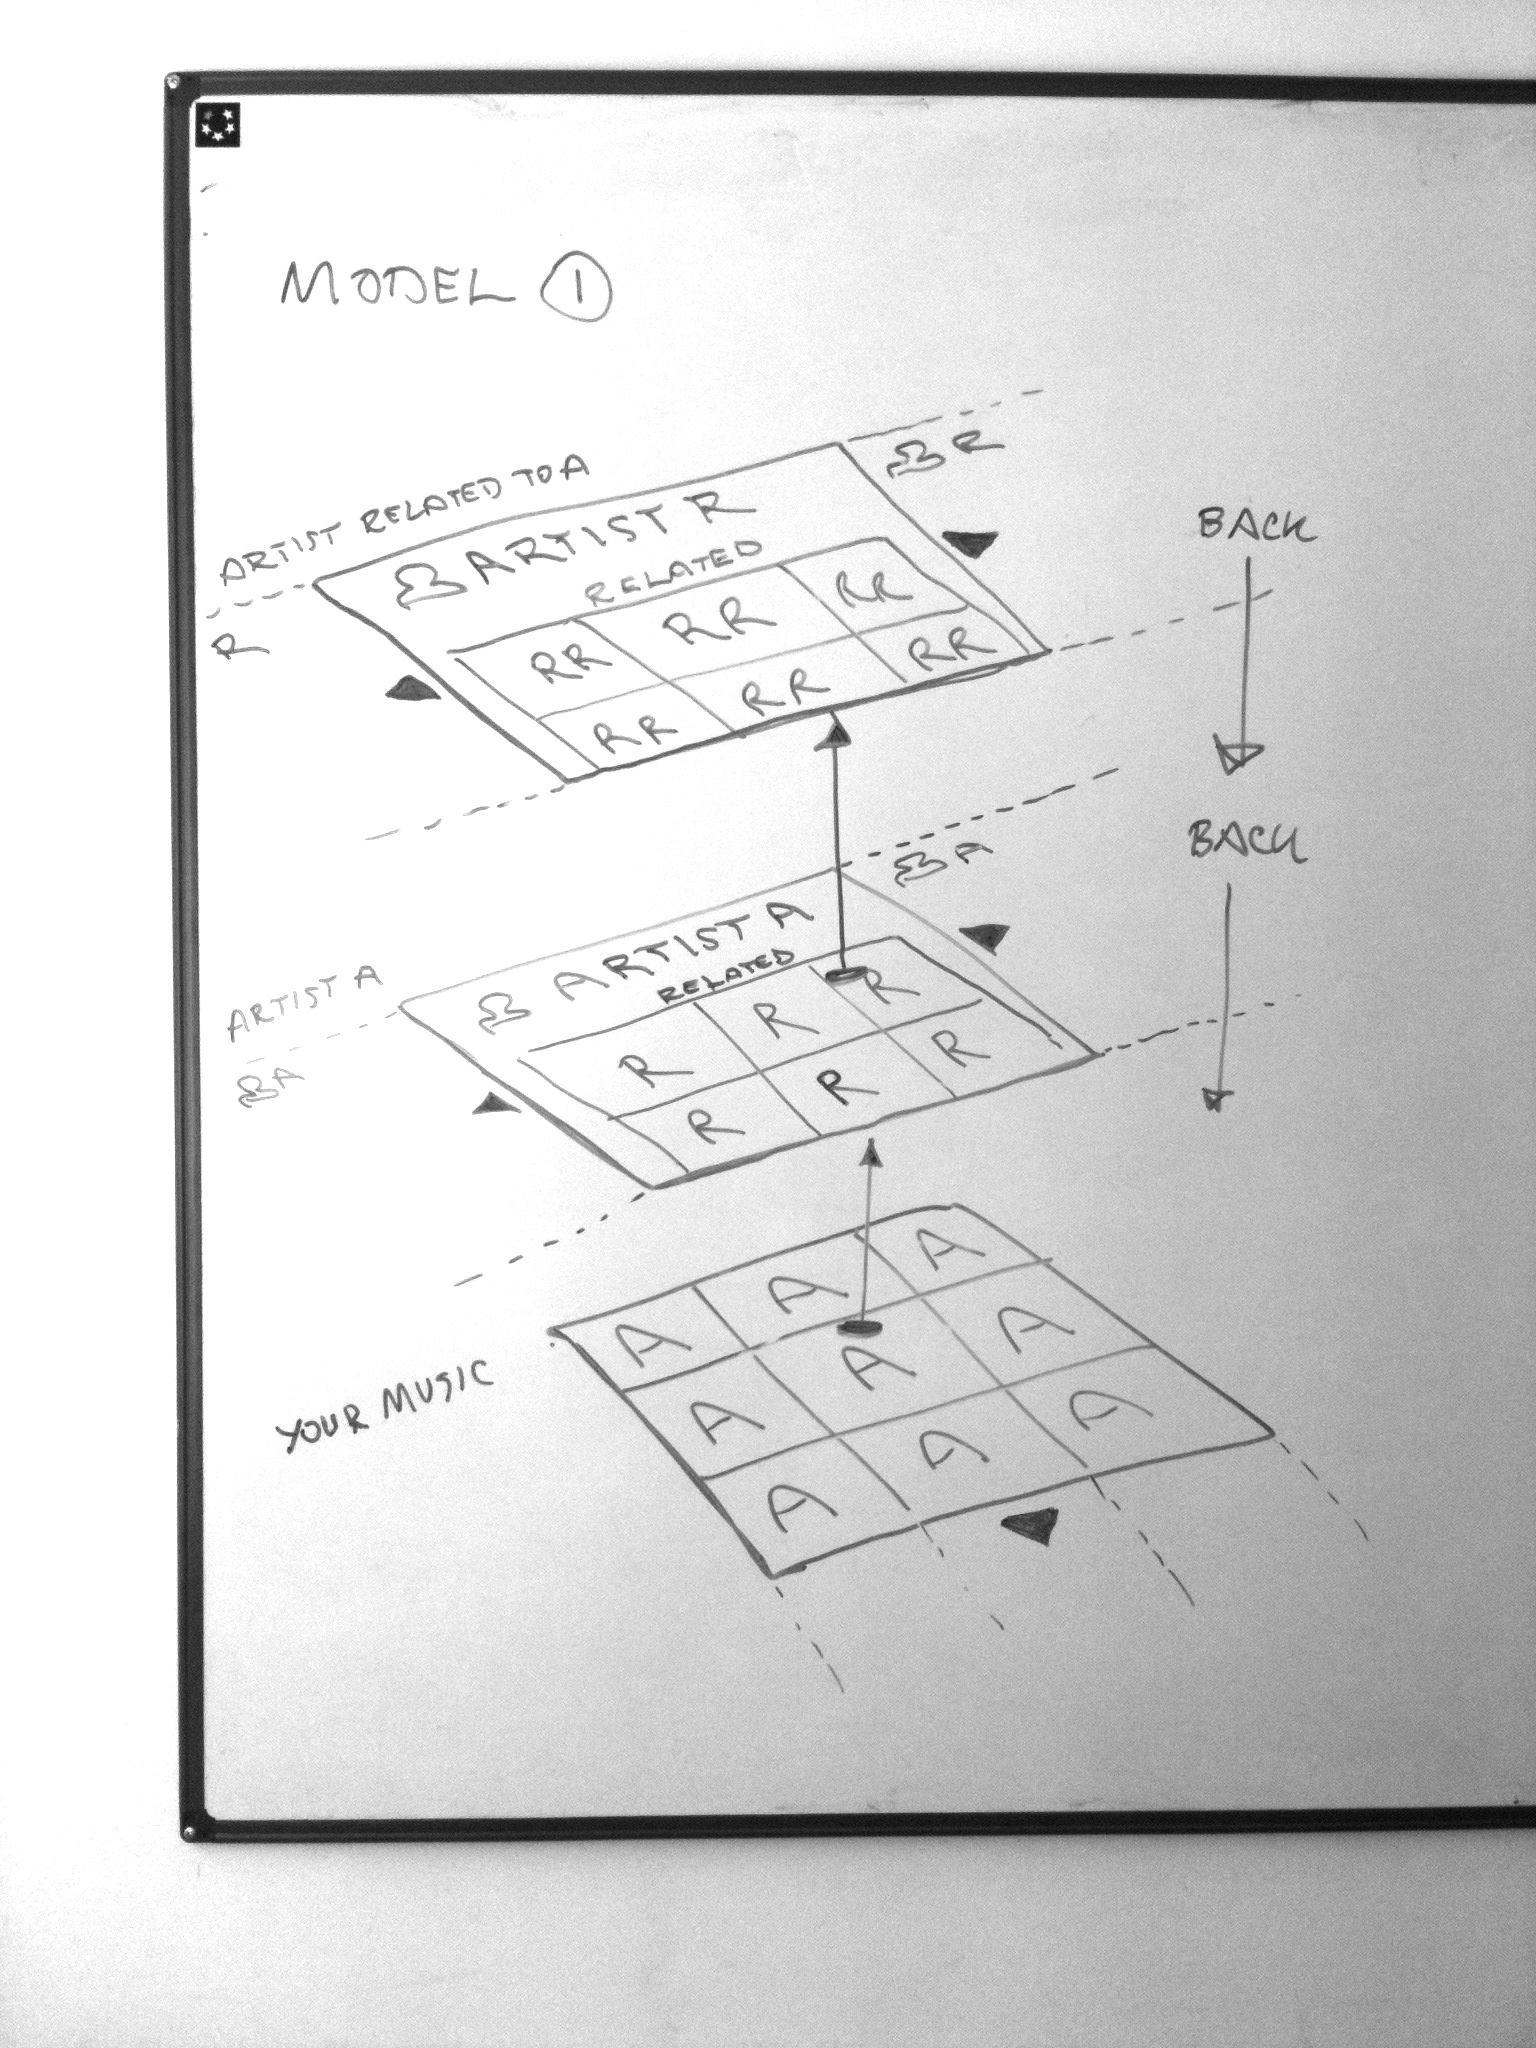 MODEL 1
ARTIST RELATED TO A
R
R
ARTIST R
RELATED
RR RR RR
RR RR RR
BACK
BACK
A
ARTIST A
A
ARTIST A
RELATED
R R R
R R R
YOUR MUSIC
A A A
A A A
A A A